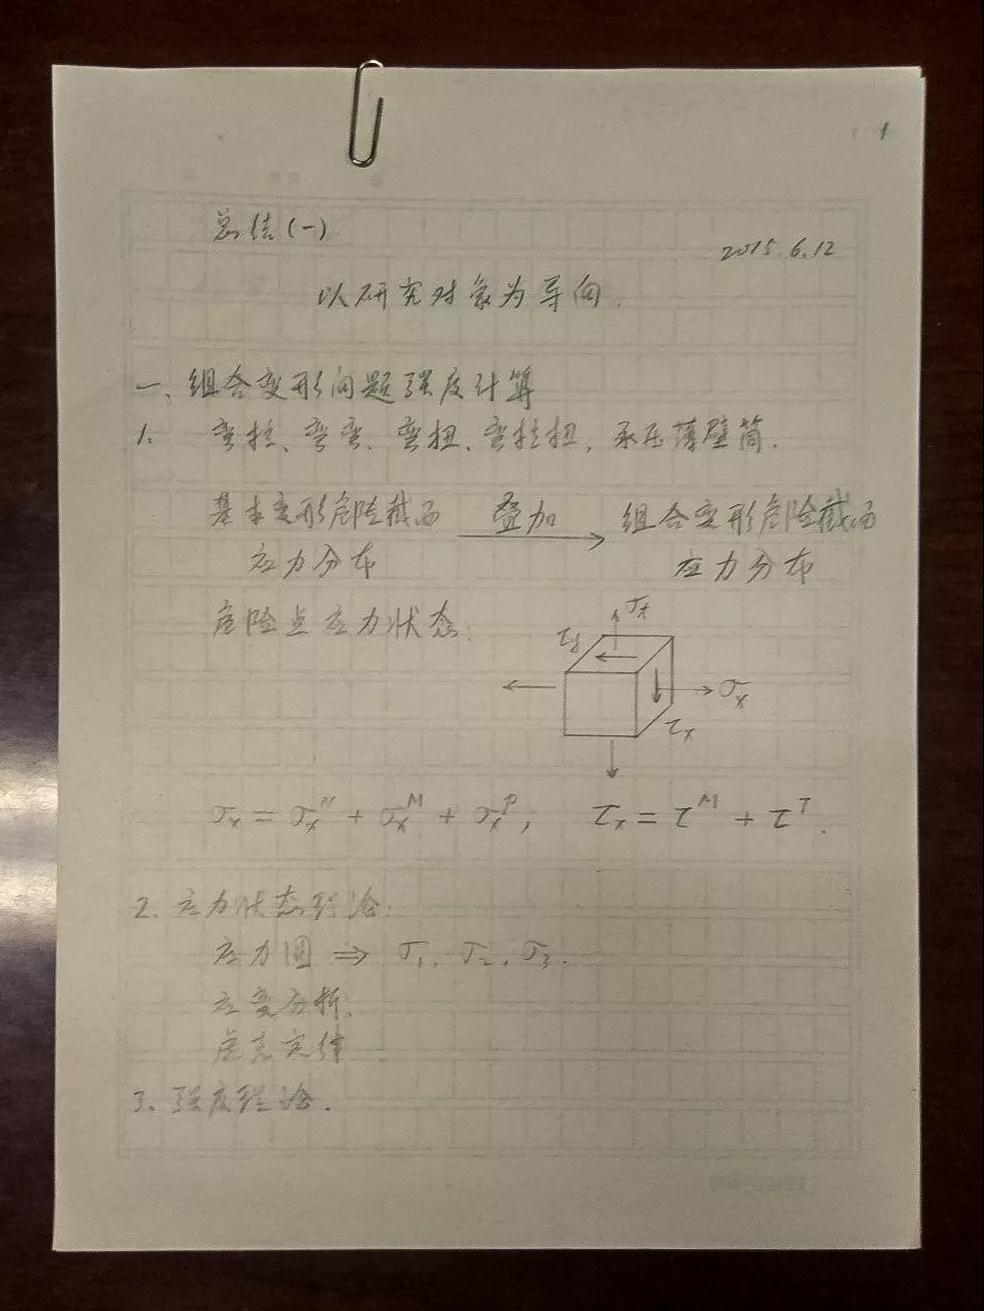 1
总结(一)
2015.6.12
以研究对象为导向.
一、组合变形问题强度计算
1. 弯拉、弯弯、弯扭、弯拉扭、承压薄壁筒.
基本变形危险截面 叠加 组合变形危险截面
应力分布 应力分布
危险点应力状态:
σₓ = σₓᴺ + σₓᴹ + σₓᴾ, τₓ = τᴹ + τᵀ.
2. 应力状态理论:
应力圆 ⇒ σ₁, σ₂, σ₃.
应变分析.
虎克定律
3. 强度理论.
σₓ
τₓ